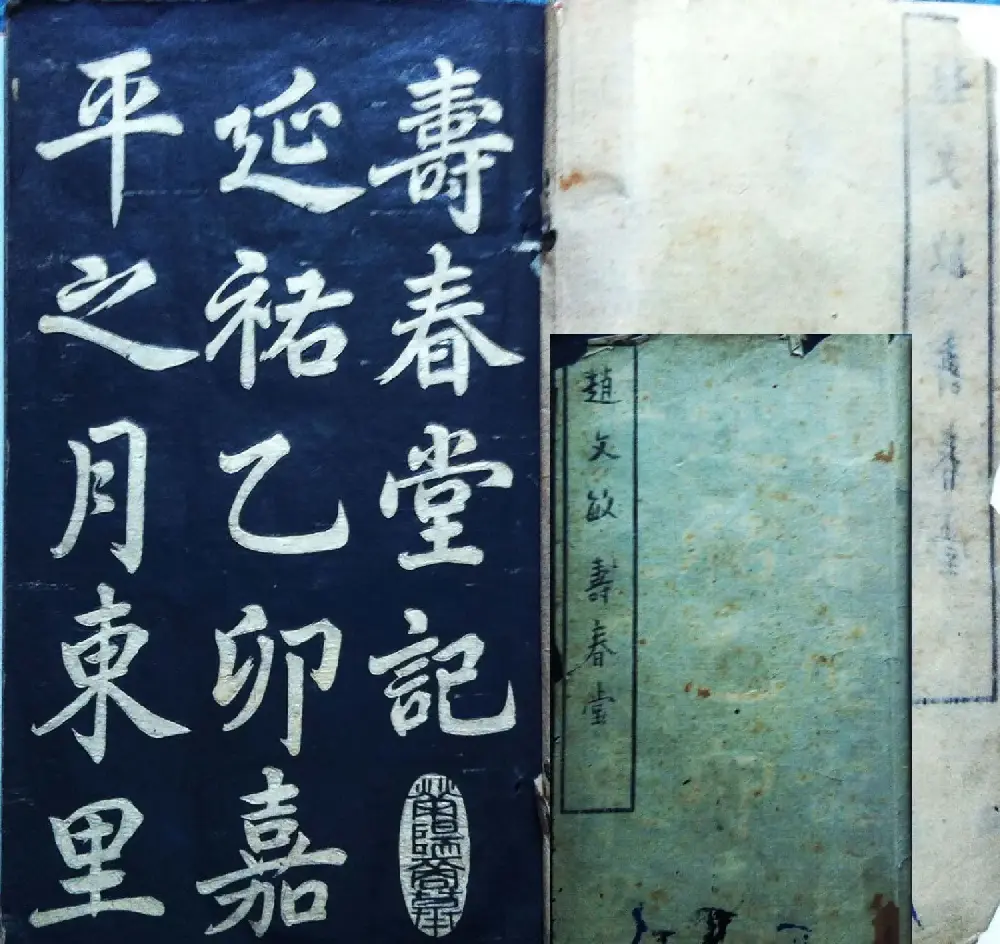 壽春堂記
延祐乙卯嘉
平之月東里
趙文敏壽春堂